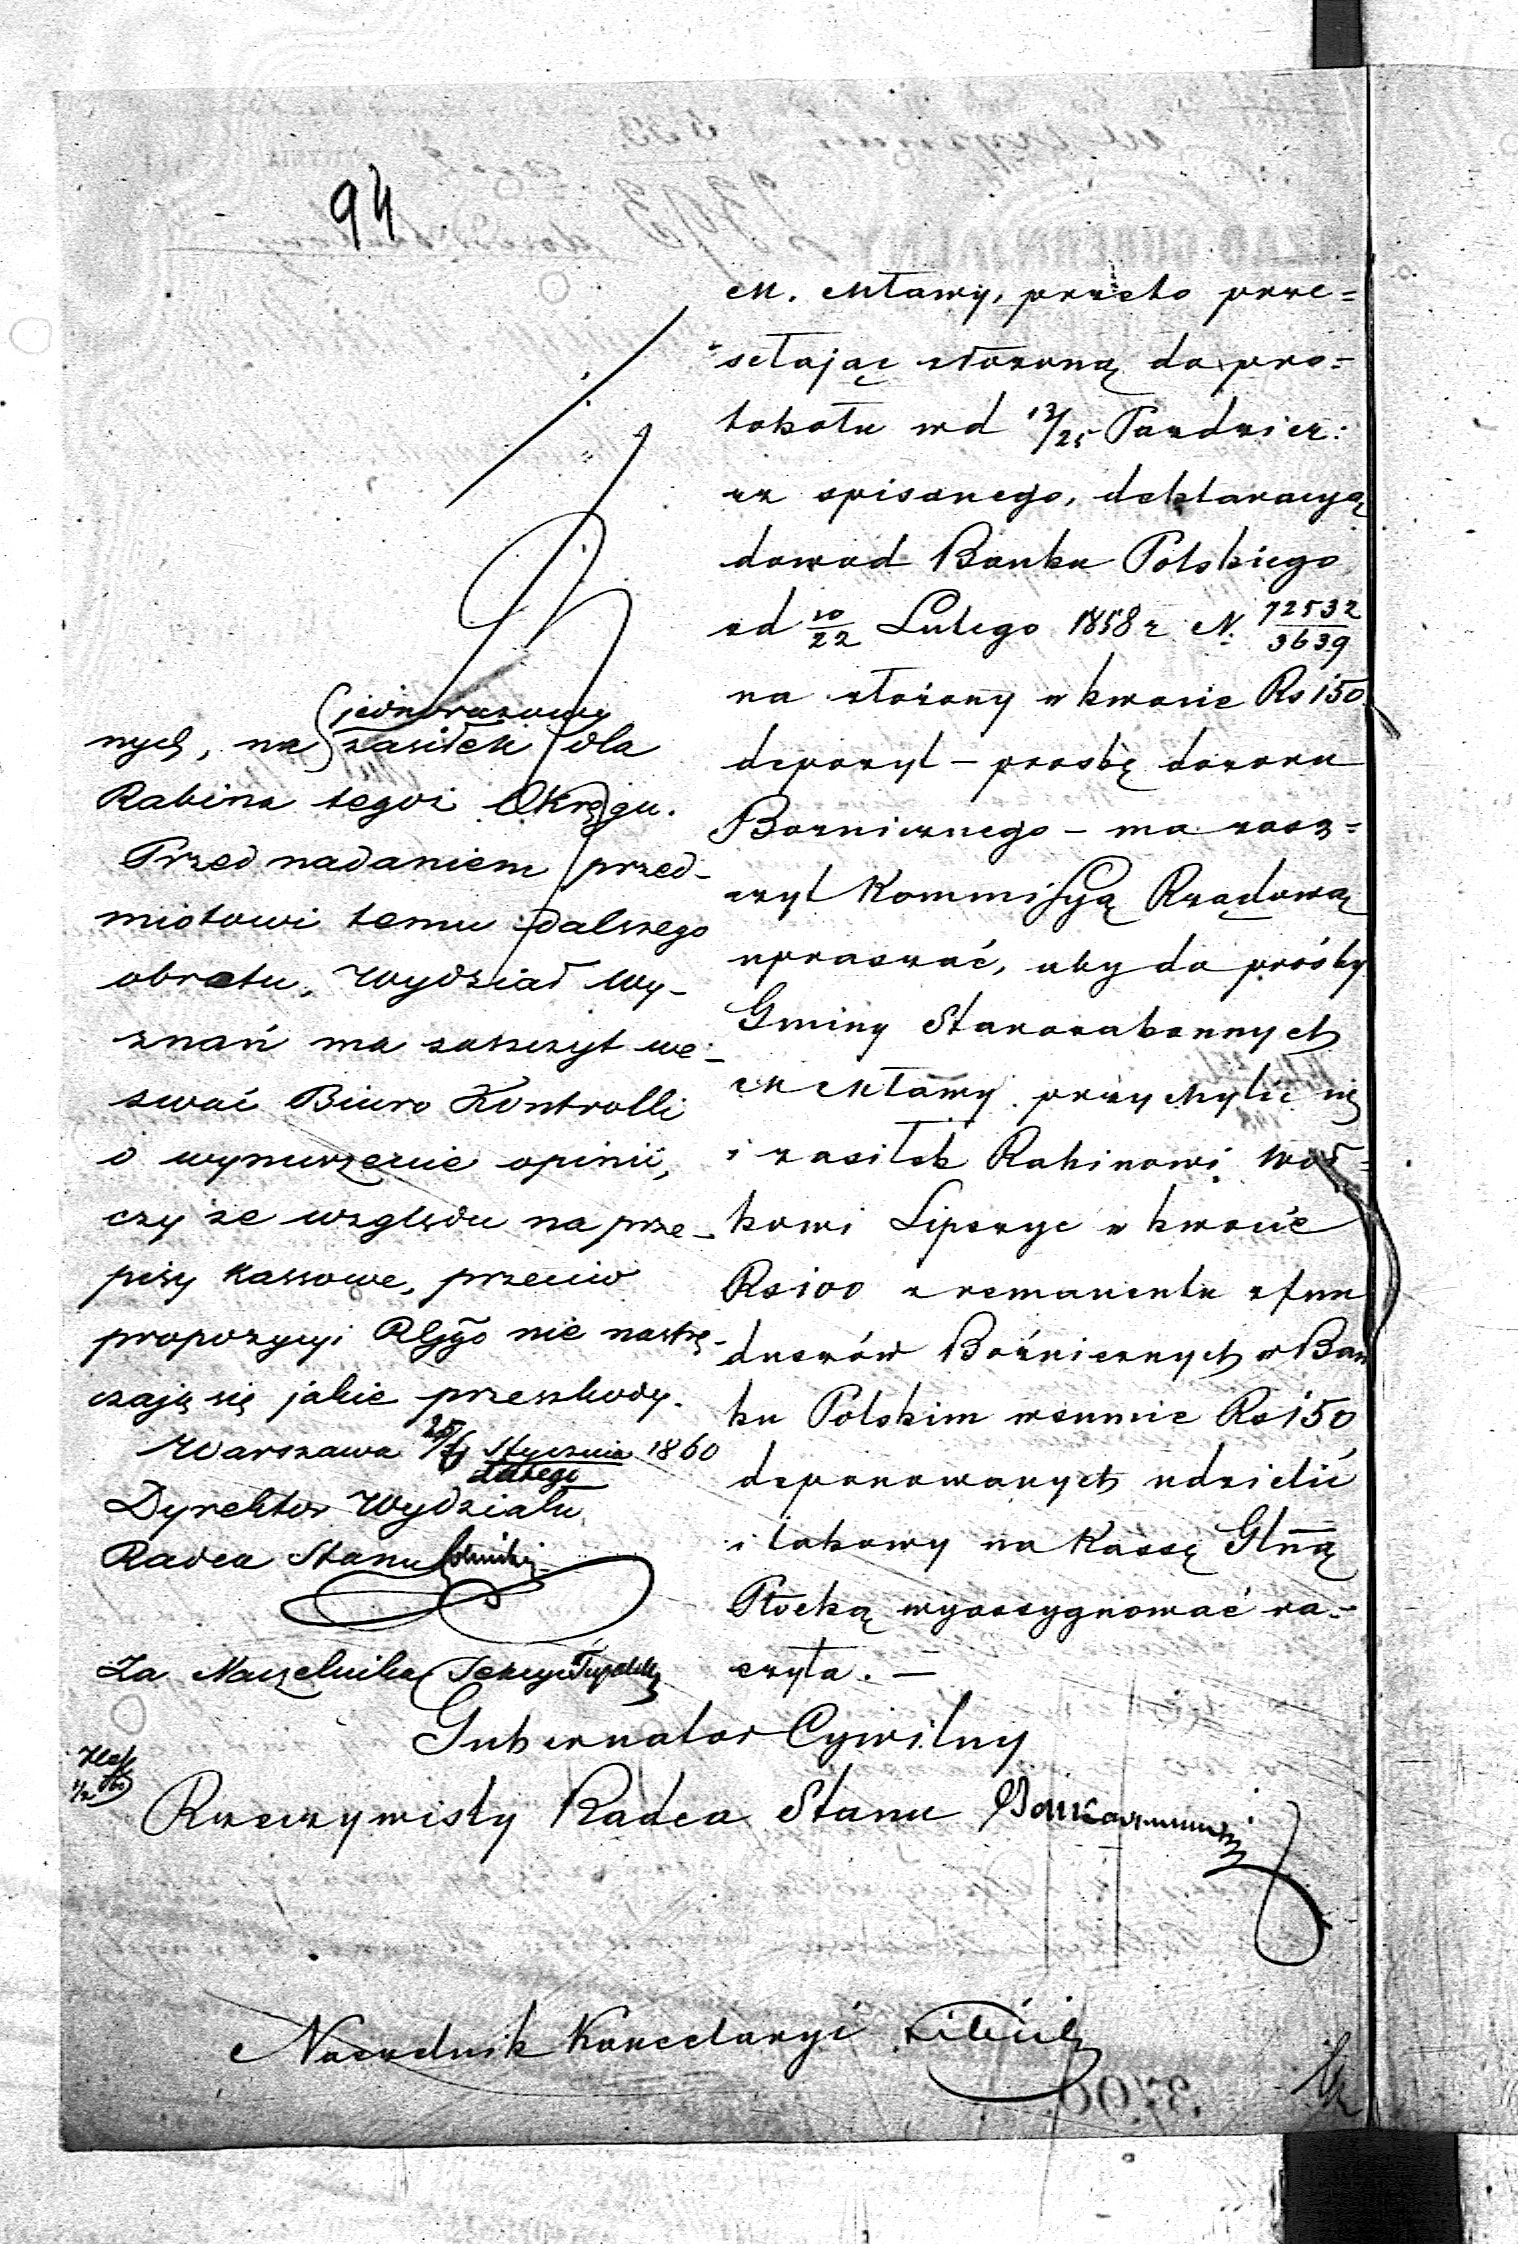 94
M. Mławy, przeto prze=
sełając złożoną do pro=
tokołu w d 13/25 Paździer:
rz spisanego, deklaracyą
dowod Banku Polskiego
z d 10/22 Lutego 1858 r N. 72532/3639
na złożony w kwocie Rs 150
depozyt – prosbę dozoru
Bożnicznego – ma zasz=
czyt Kommissyą Rządową
upraszać, aby do prośby
Gminy Starozakonnych
M Mławy przychylić się
i zasiłek Rabinowi Wol=
kowi Lipszyc w kwocie
Rs 100 z remanentu z fun
duszów Bóżnicznych w Ban
ku Polskim w summie Rs 150
deponowanych udzielić
i takowy na Kassę Głną
Płocką wyassygnować ra=
czyła. –
jednorazowy
nych, na zasiłek dla
Rabina tegoi Okręgu.
Przed nadaniem przed-
miotowi temu dalszego
obrotu, Wydział Wy-
znań ma zaszczyt we-
zwać Biuro Kontrolli
o wynurzenie opinii,
czy ze względu na prze-
pisy kassowe, przeciw
propozycyi RGgo nie nastrę-
czają się jakie przeszkody.
Warszawa Stycznia 1860
Lutego
Dyrektor Wydziału
Radca Stanu
Za Naczelnika Sekcyi
Gubernator Cywilny
Rzeczywisty Radca Stanu
Naczelnik Kancelaryi